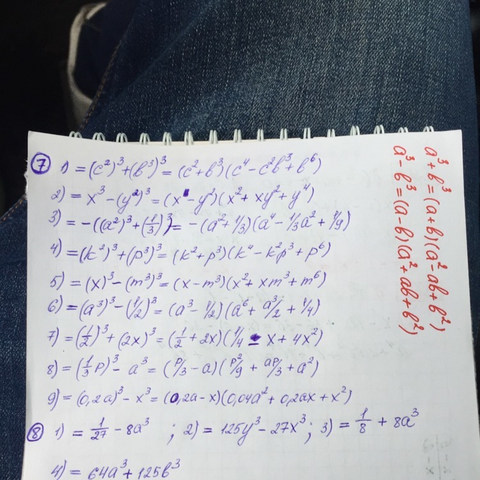 ⑦ 1) = (c²)³+(b³)³ = (c²+b³)(c⁴-c²b³+b⁶)
2) = x³-(y²)³ = (x-y²)(x²+xy²+y⁴)
3) = -((a²)³+(1/3)³) = -(a²+1/3)(a⁴-1/3a²+1/9)
4) = (k²)³+(p³)³ = (k²+p³)(k⁴-k²p³+p⁶)
5) = (x)³-(m³)³ = (x-m³)(x²+xm³+m⁶)
6) = (a³)³-(1/2)³ = (a³-1/2)(a⁶+a³/2+1/4)
7) = (1/2)³+(2x)³ = (1/2+2x)(1/4-x+4x²)
8) = (1/3p)³-a³ = (p/3-a)(p²/9+ap/3+a²)
9) = (0,2a)³-x³ = (0,2a-x)(0,04a²+0,2ax+x²)
⑧ 1) = 1/27-8a³ ; 2) = 125y³-27x³; 3) = 1/8+8a³
4) = 64a³+125b³
a³+b³=(a+b)(a²-ab+b²)
a³-b³=(a-b)(a²+ab+b²)